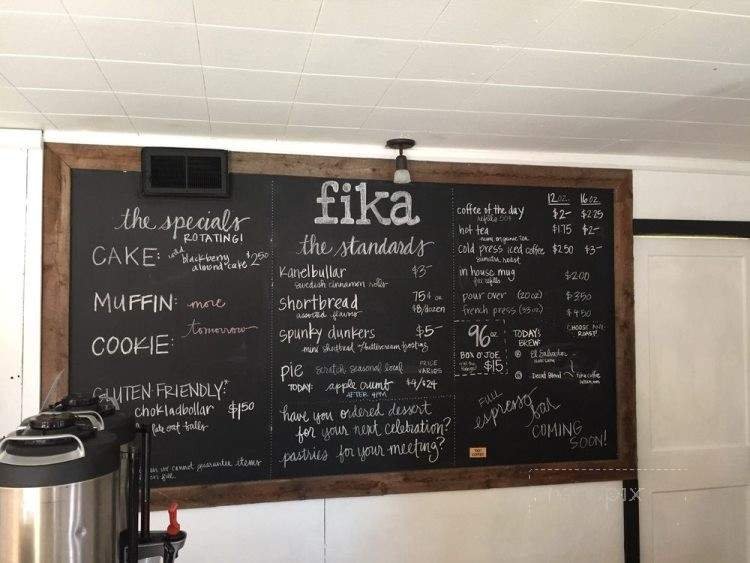 the specials
ROTATING!
CAKE:
blackberry
almond cake $2.50
MUFFIN: more
tomorrow
COOKIE:
GLUTEN FRIENDLY?
chokladbollar $1.50
oat balls
we cannot guarantee items
fika
the standards
Kanelbullar $3-
swedish cinnamon rolls
shortbread 75¢ or
assorted flavors $8/dozen
spunky dunkers $5-
mini shortbread w/buttercream frosting
pie scratch seasonal local PRICE VARIES
TODAY: apple crumb $4/$24
AFTER 4PM
have you ordered dessert
for your next celebration?
pastries for your meeting?
12oz. 16oz.
coffee of the day $2- $2.25
refills 50¢
hot tea $1.75 $2-
organic tea
cold press iced coffee $2.50 $3-
sumatra roast
in house mug $2.00
for refills
pour over (20oz) $3.50
french press (33oz) $4.50
CHOOSE ANY ROAST!
96oz
BOX O'JOE
$15
TODAY'S
BREW:
El Salvador
Decaf Blend
FULL
espresso bar
COMING
SOON!